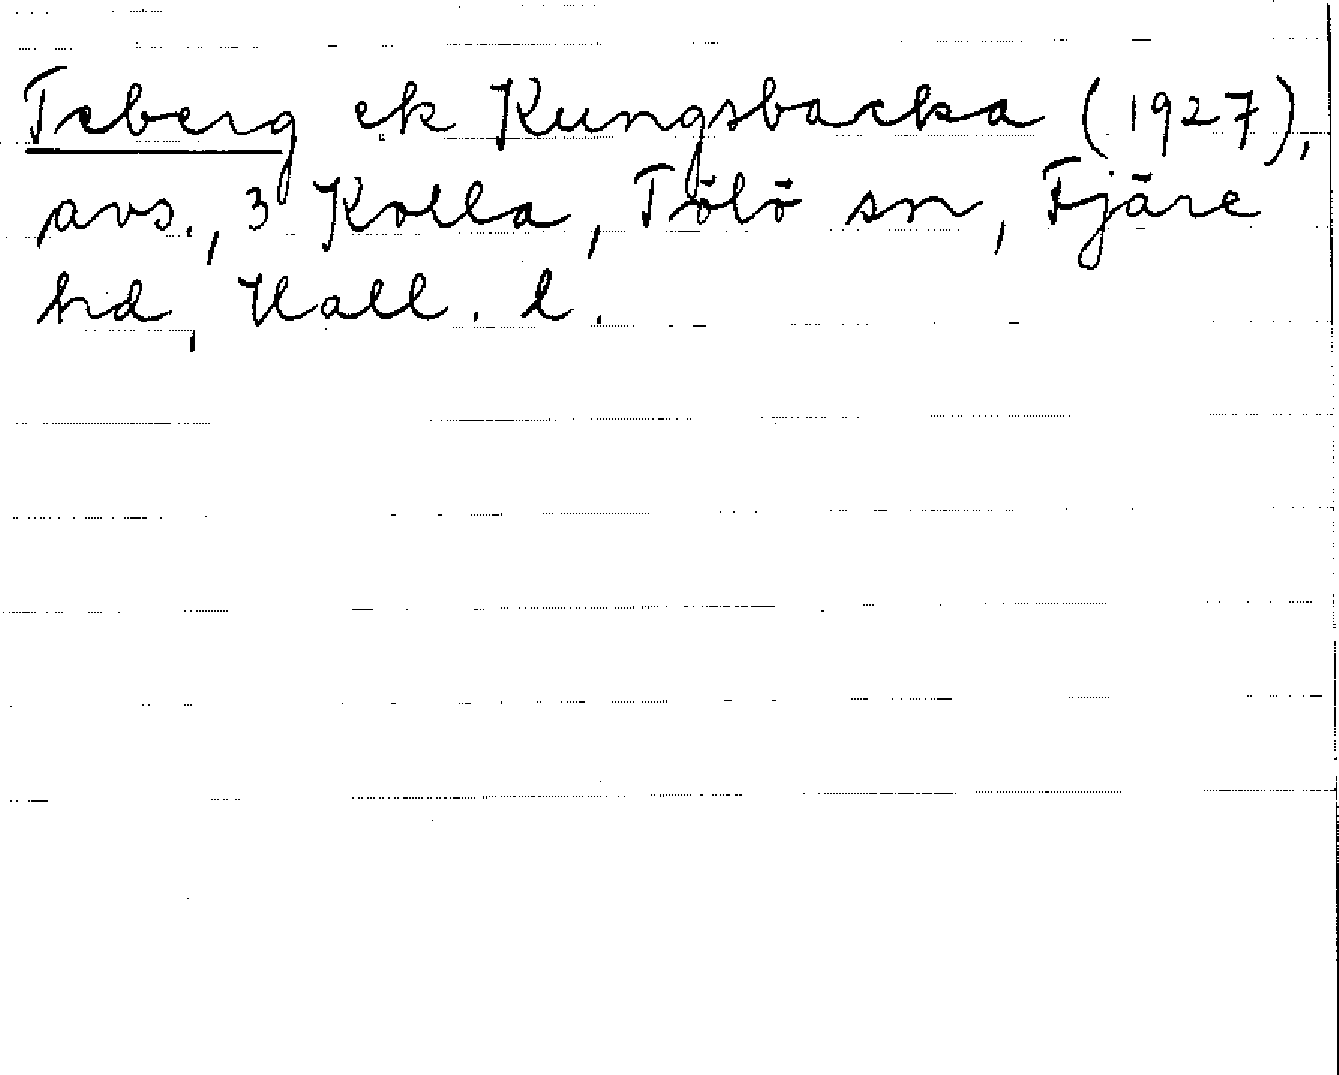 Teberg ek Kungsbacka (1927),
avs., 3 Kolla, Tölö sn, Fjäre
hd, Hall. l.